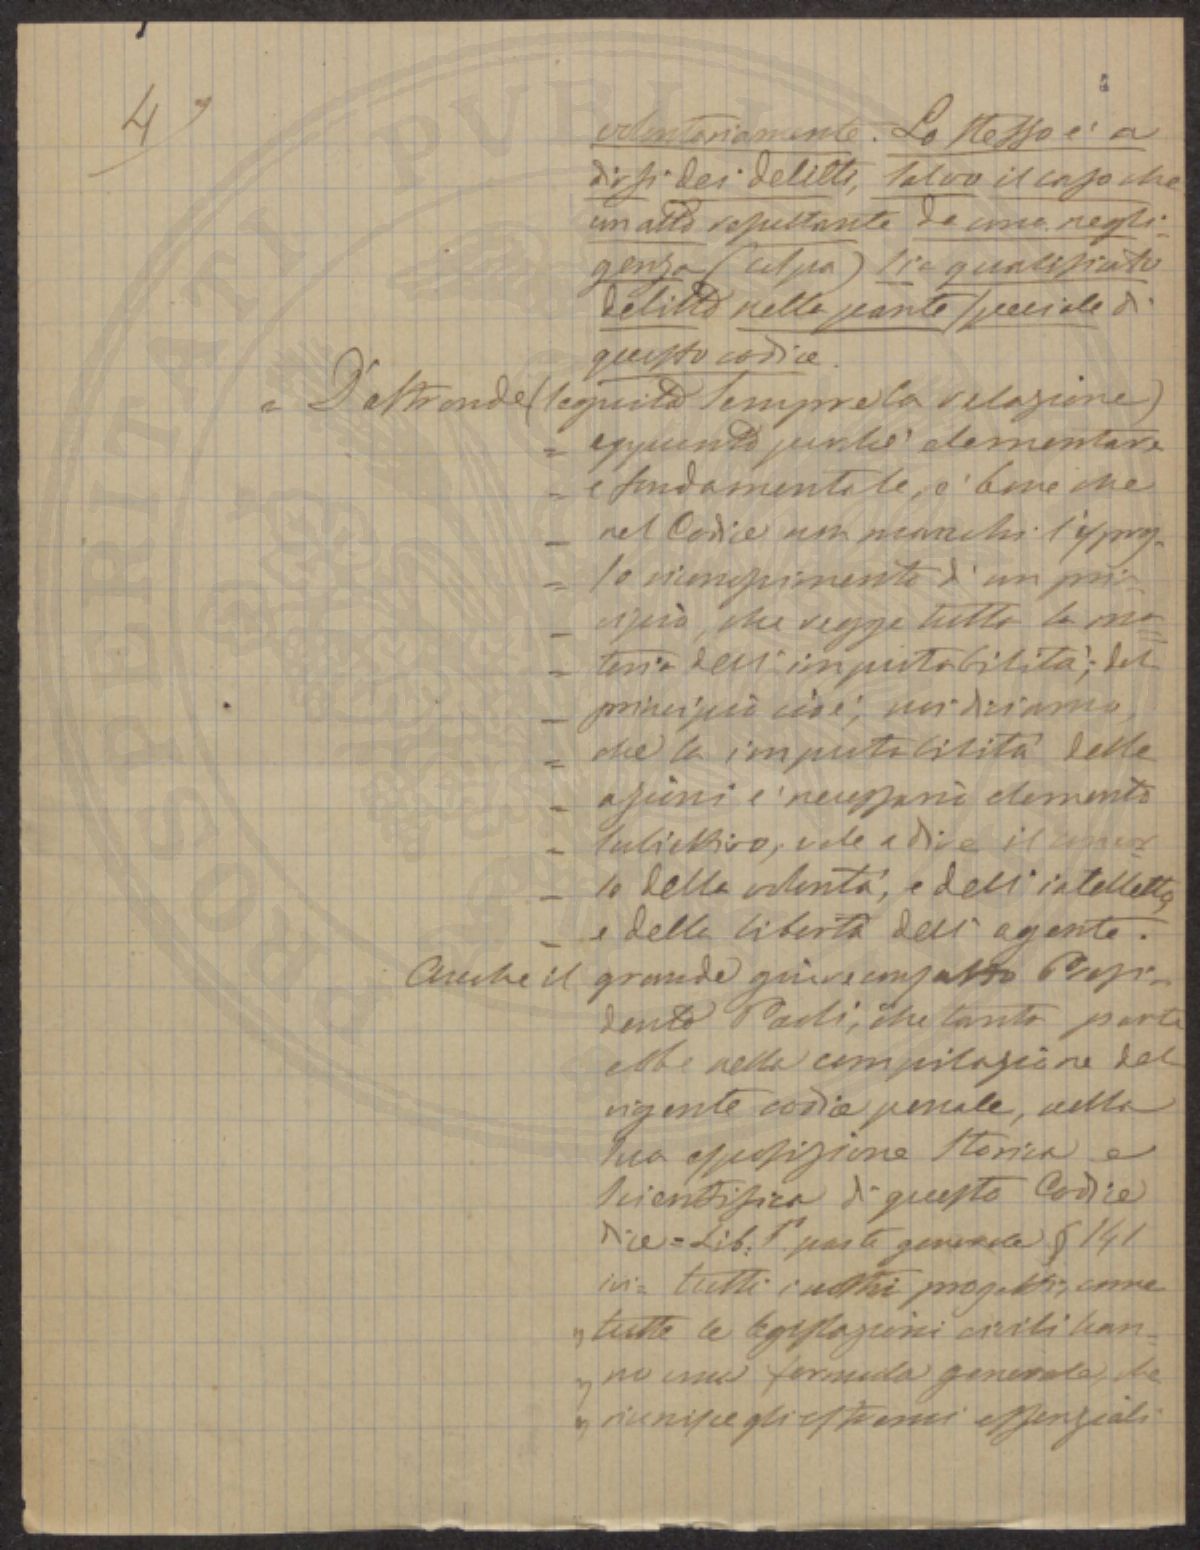 4°
volontariamente. Lo stesso è a
dirsi dei delitti, salvo il caso che
un atto resultante da una negli-
genza (culpa) sia qualificato
delitto nella parte speciale di
questo codice.
= D'altronde (seguita sempre la relazione)
= appunto perché elementare
= e fondamentale, è bene che
= nel Codice non manchi l'espres-
= so riconoscimento d'un prin-
= cipio, che regge tutta la ma-
= teria dell'imputabilità; del
= principio cioè, noi diciamo,
= che la imputabilità delle
= azioni è necessario elemento
= subiettivo, vale a dire il concor
= so della volontà, e dell'intelletto,
= e della libertà dell'agente.
Anche il grande giureconsulto Presi-
dente Paoli, che tanta parte
ebbe nella compilazione del
vigente codice penale, nella
sua esposizione storica e
scientifica di questo Codice
dice = Lib. 1° parte generale § 141
ivi = tutti i nostri progetti, come
" tutte le legislazioni civili han-
" no una formula generale, che
" riunisce gli estremi essenziali
PROSPERITATI PUBLI